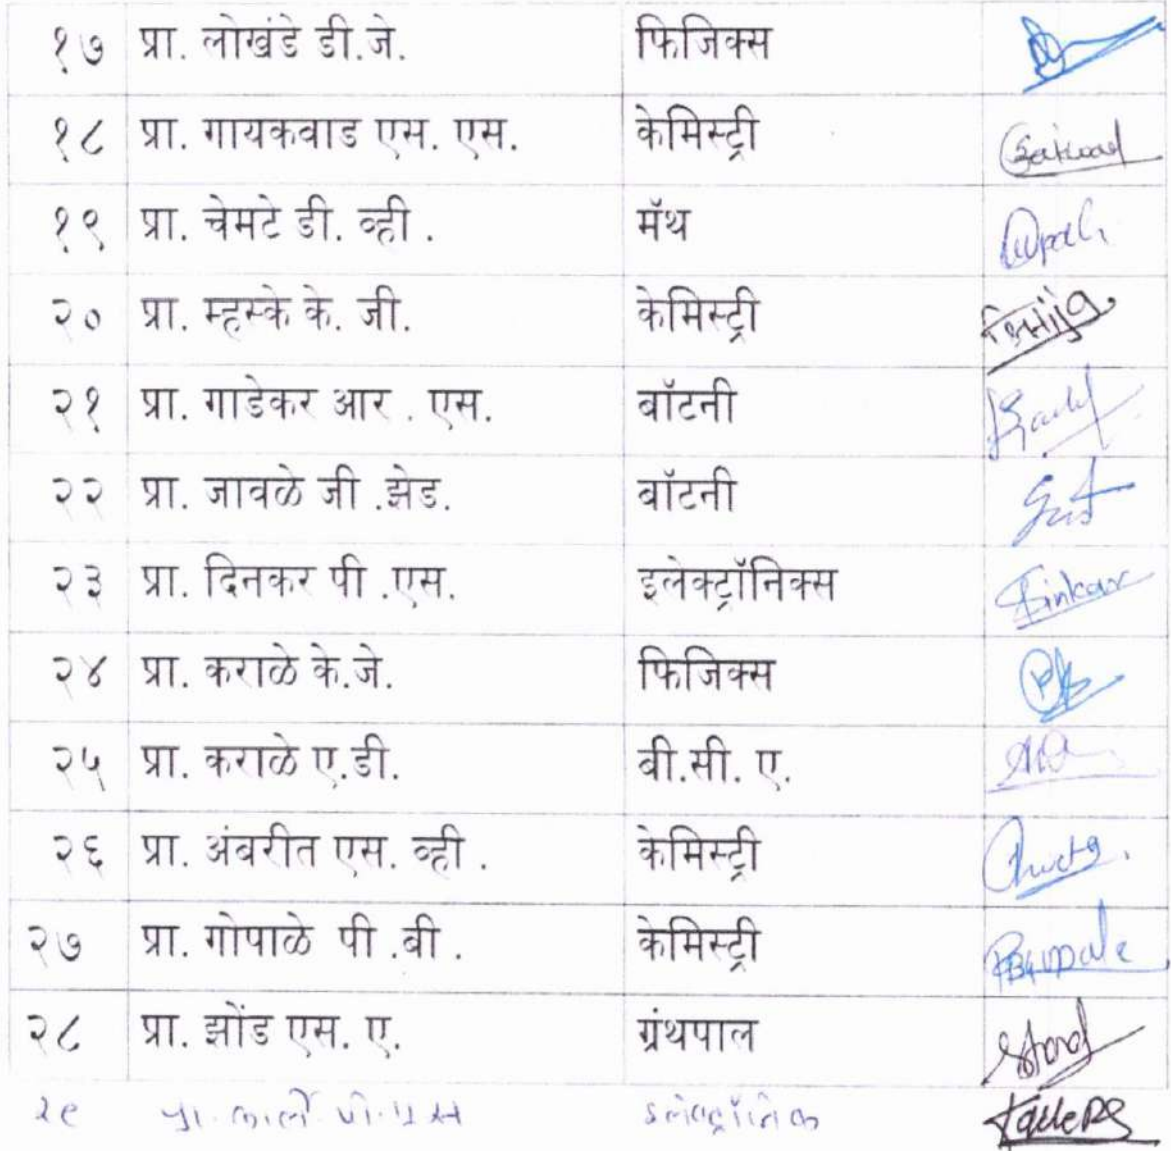 १७ प्रा. लोखंडे डी.जे. फिजिक्स
१८ प्रा. गायकवाड एस. एस. केमिस्ट्री
१९ प्रा. चेमटे डी. व्ही . मॅथ
२० प्रा. म्हस्के के. जी. केमिस्ट्री
२१ प्रा. गाडेकर आर . एस. बॉटनी
२२ प्रा. जावळे जी .झेड. बॉटनी
२३ प्रा. दिनकर पी .एस. इलेक्ट्रॉनिक्स Dinkar
२४ प्रा. कराळे के.जे. फिजिक्स
२५ प्रा. कराळे ए.डी. बी.सी. ए.
२६ प्रा. अंबरीत एस. व्ही . केमिस्ट्री
२७ प्रा. गोपाळे पी .बी . केमिस्ट्री
२८ प्रा. झोंड एस. ए. ग्रंथपाल
२९ प्रा. कार्ले पी. एस इलेक्ट्रॉनिक